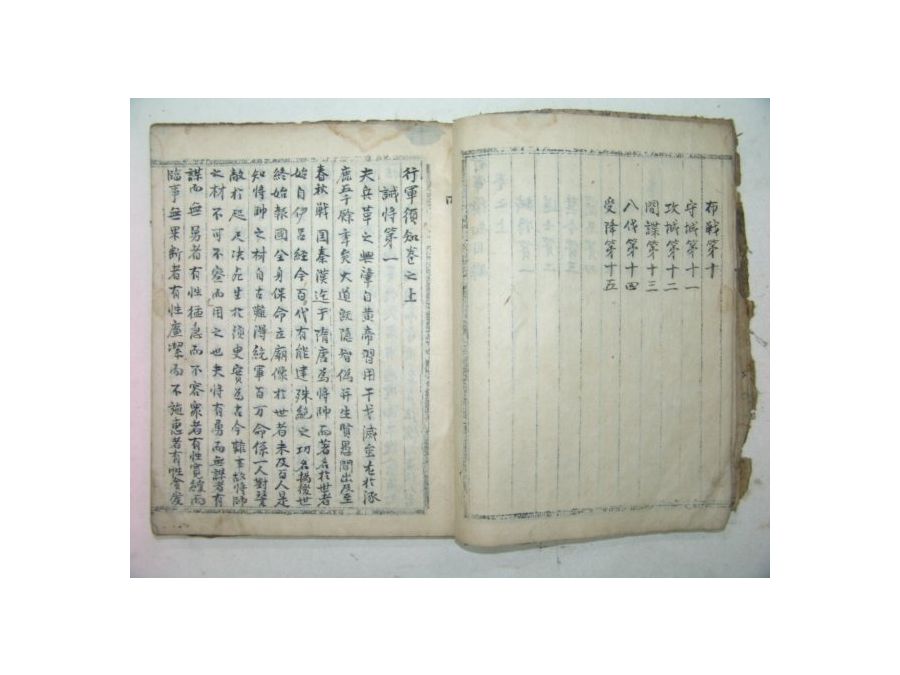 布戰第十
守城第十一
攻城第十二
間諜第十三
八伐第十四
受降第十五
行軍須知卷之上
誡將第一
夫兵革之興肇自黃帝習用干戈滅蚩尤於涿
鹿五千餘季矣大道旣隱智僞并生賢愚間出及至
春秋戦国秦漢迄于隋唐爲將帥而著名於世者
始自伊呂經今百代有能建殊絶之功名揚後世
終始報國全身保命立廟像於世者未及百人是
知將帥之材自古難得統軍百万命係一人對壘
敵於咫尺决死生於須更實爲古今難事故將帥
之材不可不察而用之也夫將有勇而無謀者有
謀而無勇者有性褊急而不容衆者有性寬緩而
臨事無果断者有性廉潔而不施惠者有性